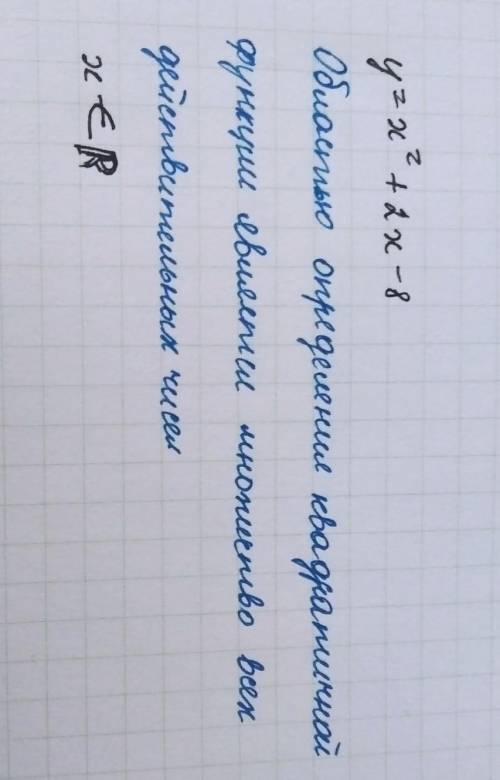 y = x² + 2x - 8
Областью определения квадратичной
функции является множество всех
действительных чисел
x ∈ ℝ